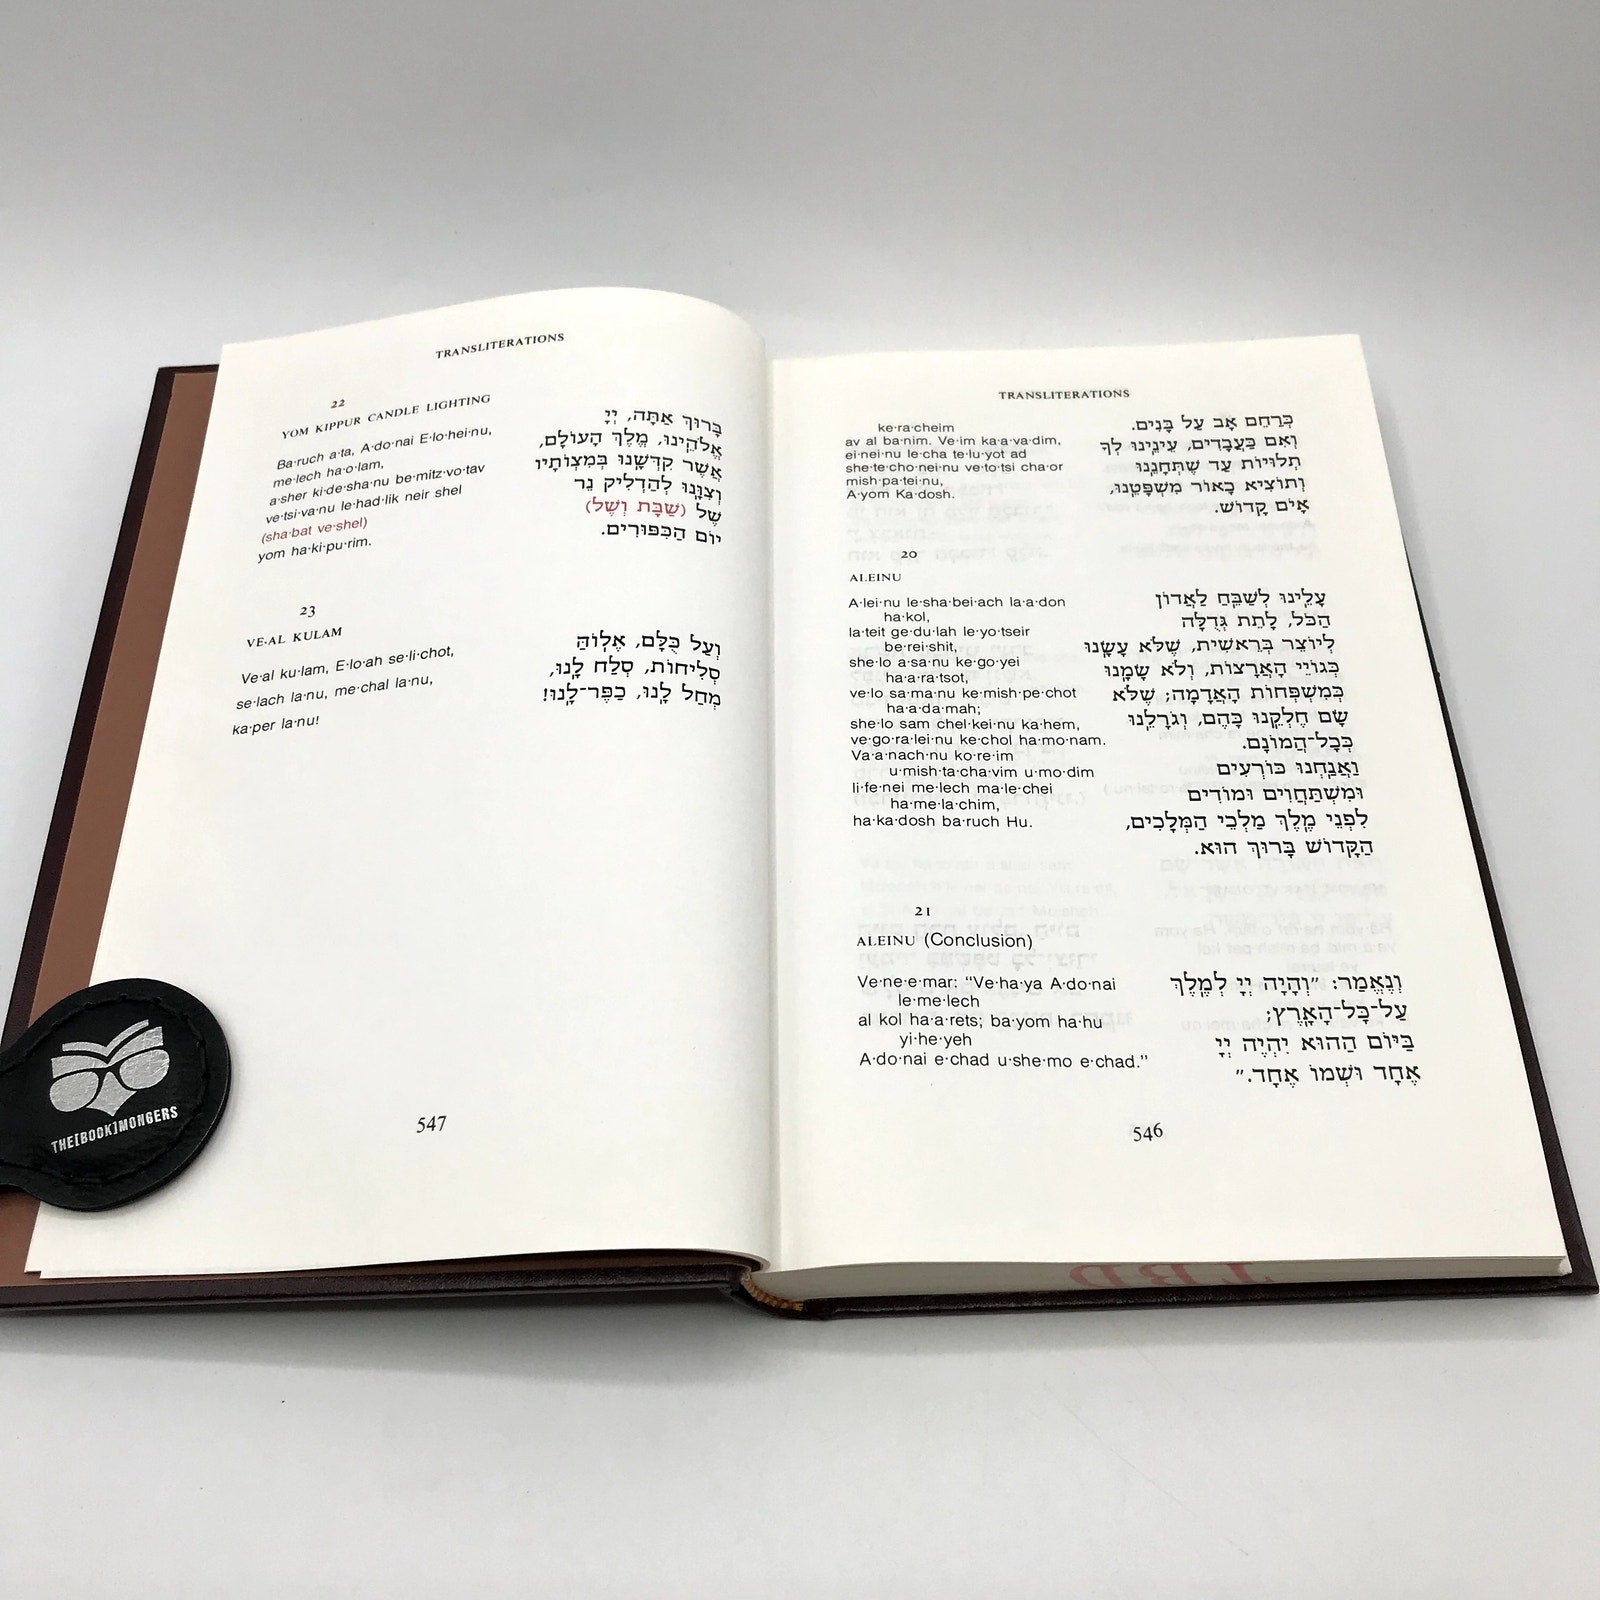 TRANSLITERATIONS
ke·ra·cheim
av al ba·nim. Ve·im ka·a·va·dim,
ei·nei·nu le·cha te·lu·yot ad
she·te·cho·nei·nu ve·to·tsi cha·or
mish·pa·tei·nu,
A·yom Ka·dosh.
כְּרַחֵם אָב עַל בָּנִים.
וְאִם כַּעֲבָדִים, עֵינֵינוּ לְךָ
תְלוּיוֹת עַד שֶׁתְּחָנֵּנוּ
וְתוֹצִיא כָאוֹר מִשְׁפָּטֵנוּ,
אָיֹם קָדוֹשׁ.
20
ALEINU
A·lei·nu le·sha·bei·ach la·a·don
ha·kol,
la·teit ge·du·lah le·yo·tseir
be·rei·shit,
she·lo a·sa·nu ke·go·yei
ha·a·ra·tsot,
ve·lo sa·ma·nu ke·mish·pe·chot
ha·a·da·mah;
she·lo sam chel·kei·nu ka·hem,
ve·go·ra·lei·nu ke·chol ha·mo·nam.
Va·a·nach·nu ko·re·im
u·mish·ta·cha·vim u·mo·dim
li·fe·nei me·lech ma·le·chei
ha·me·la·chim,
ha·ka·dosh ba·ruch Hu.
עָלֵינוּ לְשַׁבֵּחַ לַאֲדוֹן
הַכֹּל, לָתֵת גְּדֻלָּה
לְיוֹצֵר בְּרֵאשִׁית, שֶׁלֹּא עָשָׂנוּ
כְּגוֹיֵי הָאֲרָצוֹת, וְלֹא שָׂמָנוּ
כְּמִשְׁפְּחוֹת הָאֲדָמָה; שֶׁלֹּא
שָׂם חֶלְקֵנוּ כָּהֶם, וְגֹרָלֵנוּ
כְּכָל־הֲמוֹנָם.
וַאֲנַחְנוּ כּוֹרְעִים
וּמִשְׁתַּחֲוִים וּמוֹדִים
לִפְנֵי מֶלֶךְ מַלְכֵי הַמְּלָכִים,
הַקָּדוֹשׁ בָּרוּךְ הוּא.
21
ALEINU (Conclusion)
Ve·ne·e·mar: "Ve·ha·ya A·do·nai
le·me·lech
al kol ha·a·rets; ba·yom ha·hu
yi·he·yeh
A·do·nai e·chad u·she·mo e·chad."
וְנֶאֱמַר: ״וְהָיָה יְיָ לְמֶלֶךְ
עַל־כָּל־הָאָרֶץ;
בַּיּוֹם הַהוּא יִהְיֶה יְיָ
אֶחָד וּשְׁמוֹ אֶחָד.״
546
TRANSLITERATIONS
22
YOM KIPPUR CANDLE LIGHTING
Ba·ruch a·ta, A·do·nai E·lo·hei·nu,
me·lech ha·o·lam,
a·sher ki·de·sha·nu be·mitz·vo·tav
ve·tsi·va·nu le·had·lik neir shel
(sha·bat ve·shel)
yom ha·ki·pu·rim.
בָּרוּךְ אַתָּה, יְיָ
אֱלֹהֵינוּ, מֶלֶךְ הָעוֹלָם,
אֲשֶׁר קִדְּשָׁנוּ בְּמִצְוֹתָיו
וְצִוָּנוּ לְהַדְלִיק נֵר
שֶׁל (שַׁבָּת וְשֶׁל)
יוֹם הַכִּפּוּרִים.
23
VE·AL KULAM
Ve·al ku·lam, E·lo·ah se·li·chot,
se·lach la·nu, me·chal la·nu,
ka·per la·nu!
וְעַל כֻּלָּם, אֱלוֹהַּ
סְלִיחוֹת, סְלַח לָנוּ,
מְחַל לָנוּ, כַּפֶּר־לָנוּ!
547
THE[BOOK]MONGERS